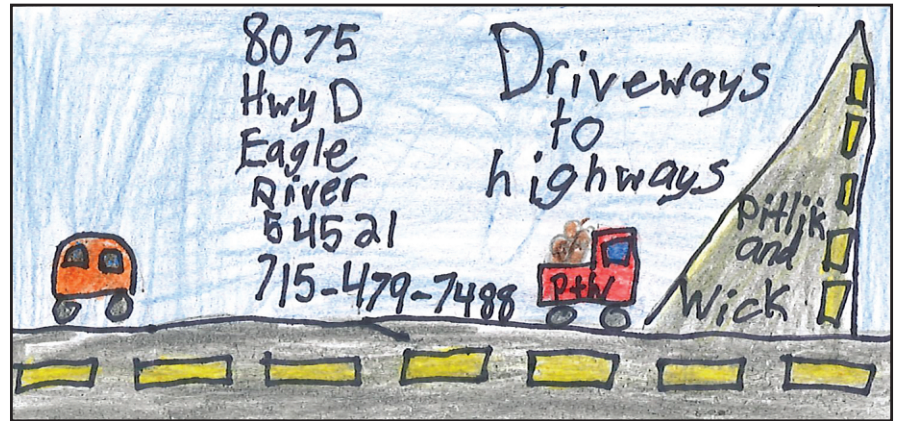 8075
Hwy D
Eagle
River
54521
715-479-7488
Driveways
to
highways
P+W
Pitlik
and
Wick